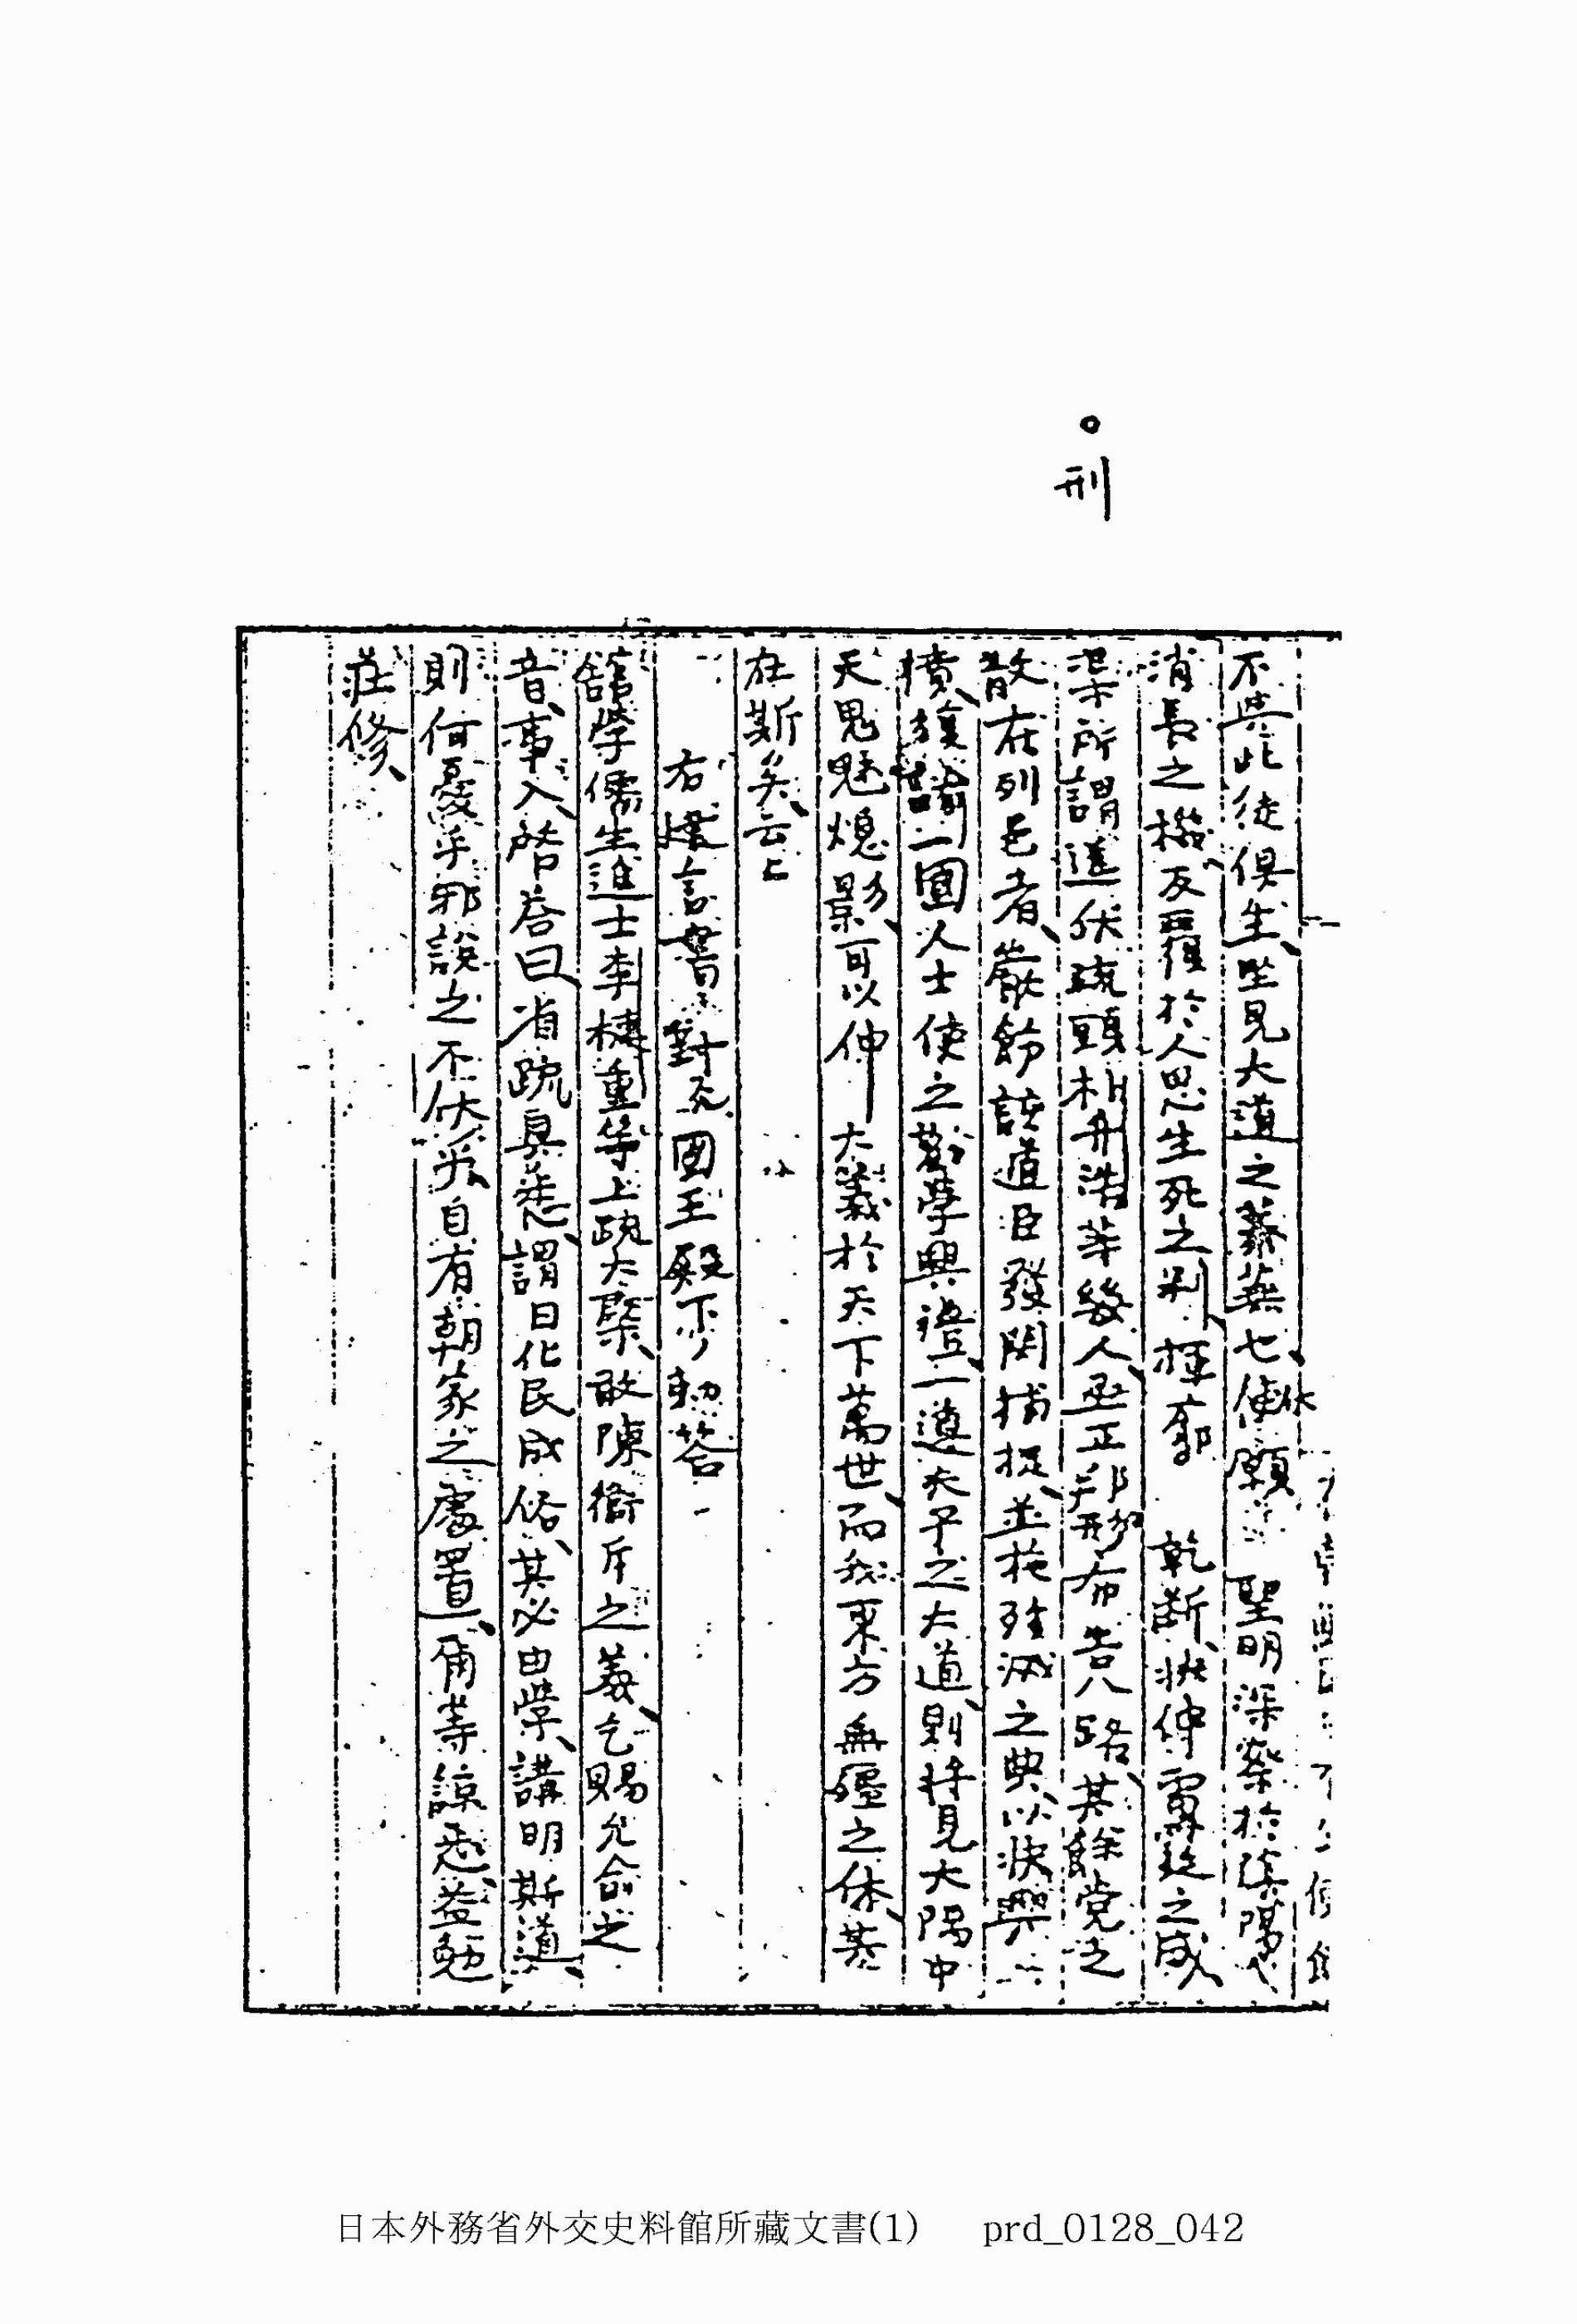 刑
不與此徒俱生、坐見大道之蓁蕪也、伏願 聖明深察於陰陽
消長之機、反覆於人思生死之判、揮廓 乾断、快伸雷霆之威、
渠所謂道伏疏頭朴升浩等幾人、亟正邦形、布告八路、其餘党之
散在列邑者、嚴飭該道臣發関捕捉、並施殄滅之典、以快輿
憤、摟諭一國人士、使之勸學興禮、一遵夫子之大道、則将見大陽中
天鬼魅熄影、可以伸大義於天下萬世、而我東方無彊之休、其
在斯矣、云々
右建言書對 國王殿下勅答
舘學儒生進士李 重等上疏大槩、敢陳衛斥之義、乞賜允兪之
音、事入啓、答曰、省疏具悉、謂曰化民成俗、其必由學、講明斯道、
則何憂乎邪說之不伏乎、自有朝家之處置、爾等諒悉、益勉
莊修、
日本外務省外交史料館所藏文書(1) prd_0128_042